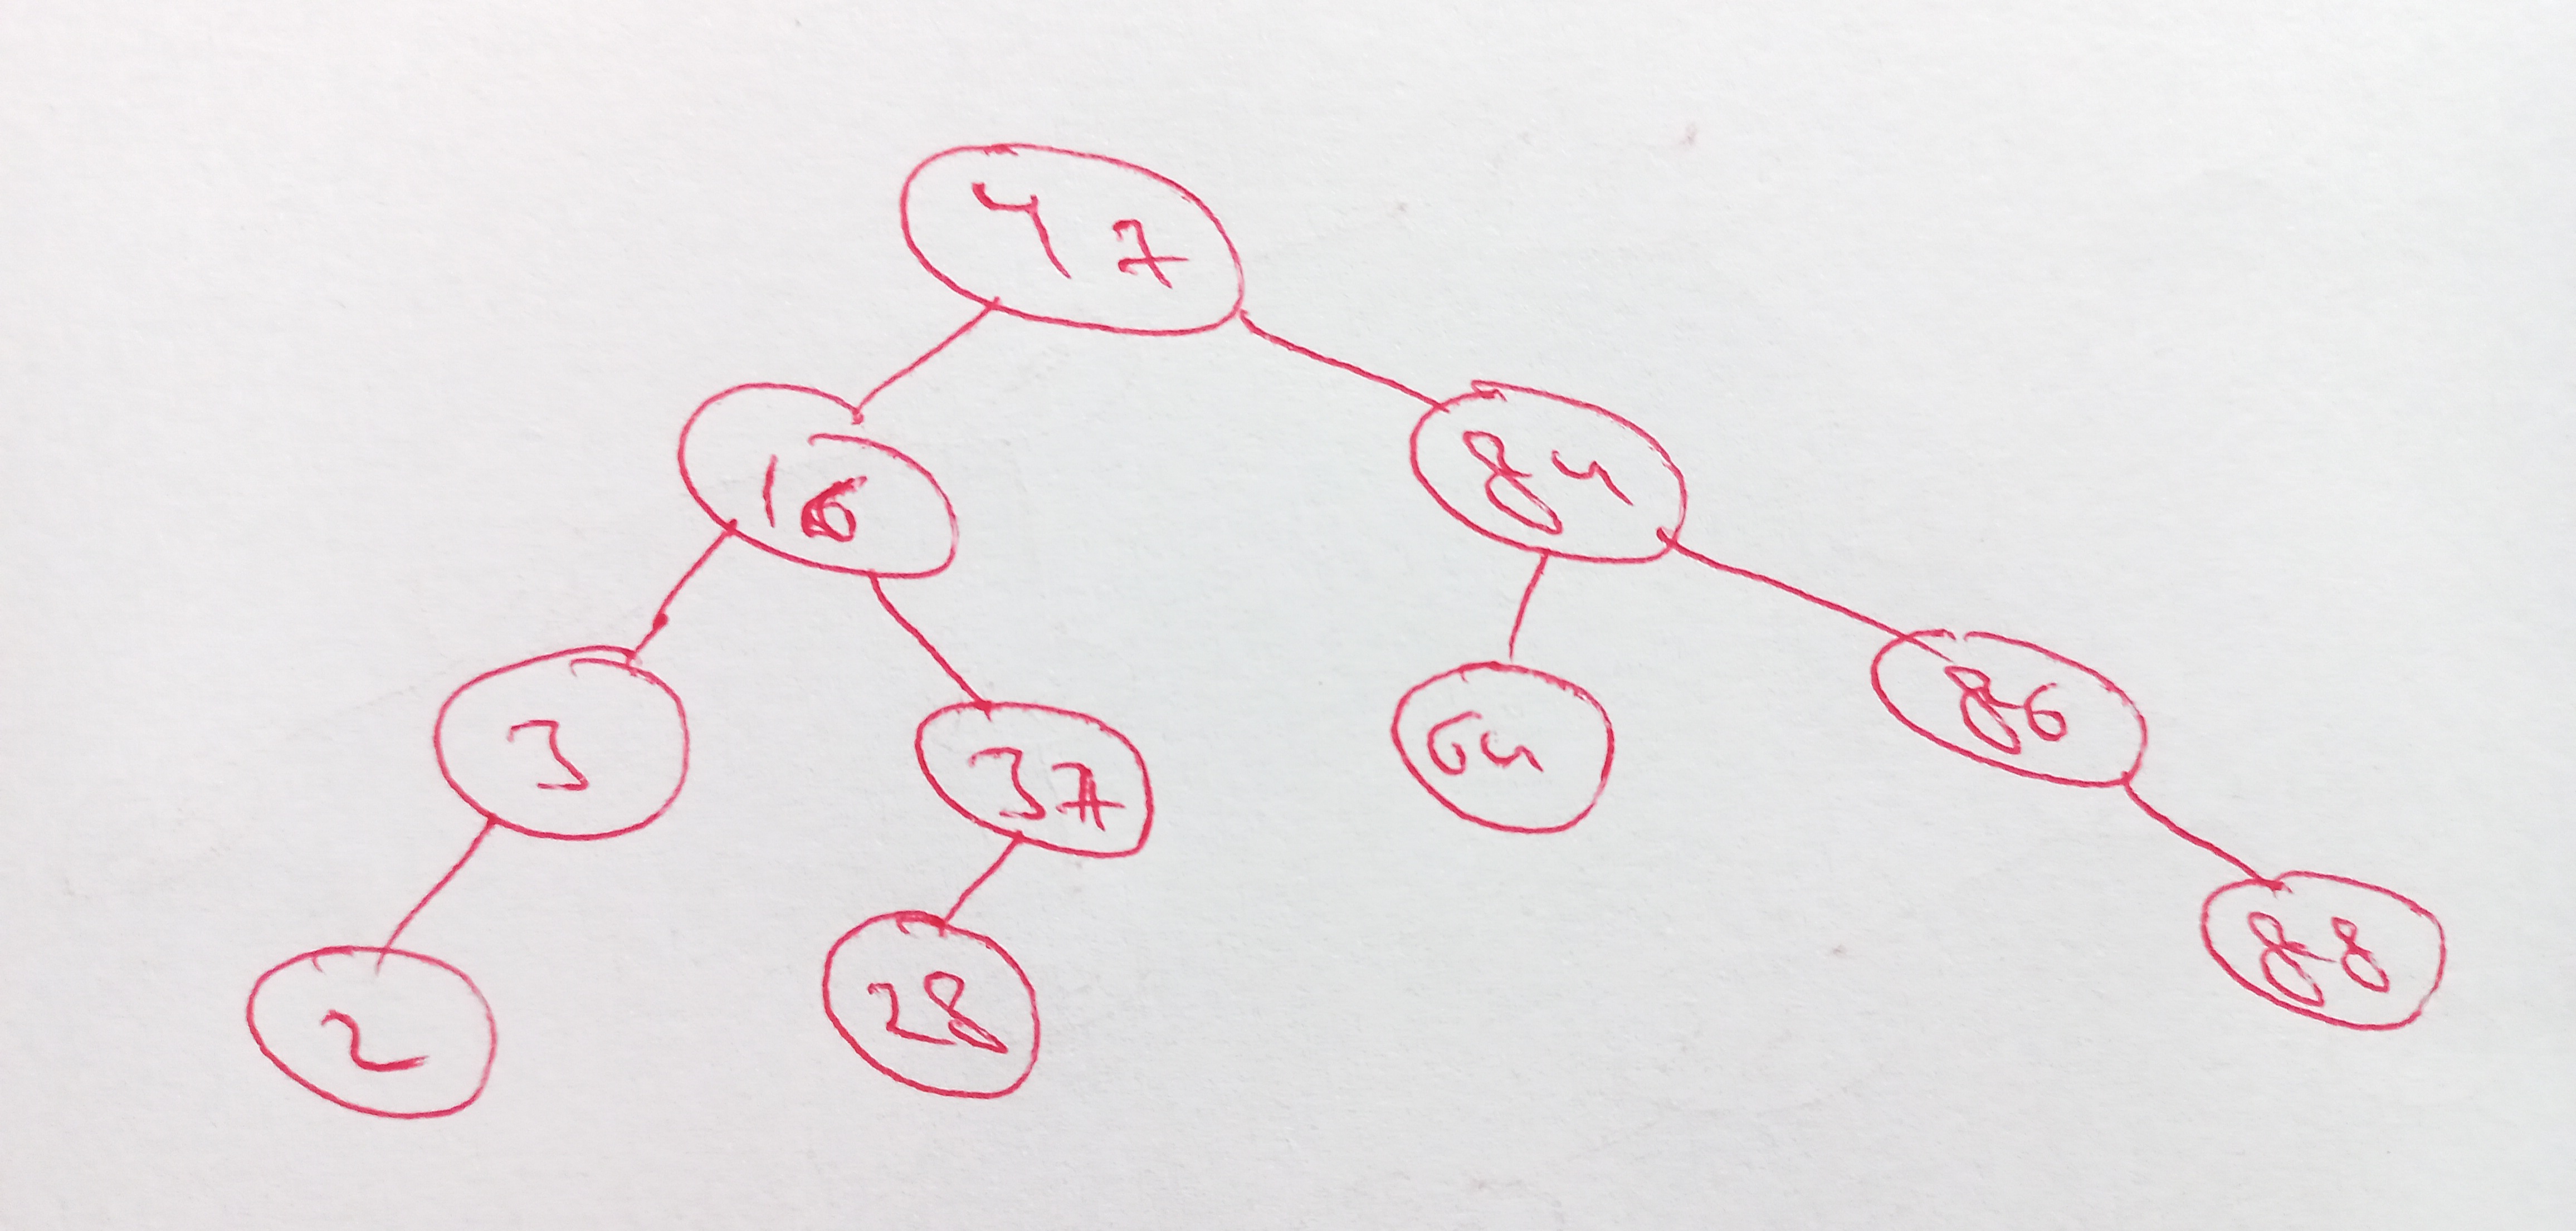 47
16 84
3 37 64 86
2 28 88